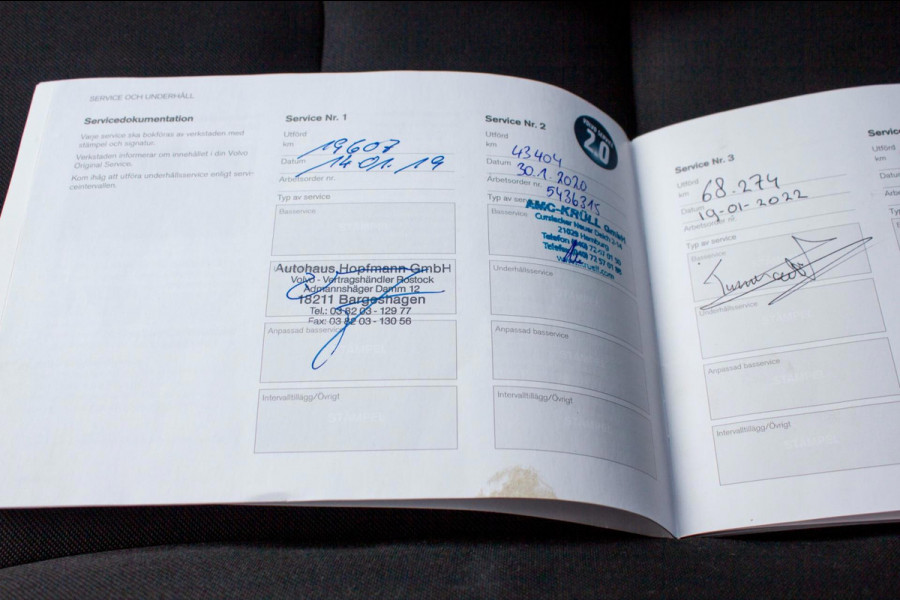 SERVICE OCH UNDERHÅLL
Servicedokumentation
Varje service ska bokföras av verkstaden med
stämpel och signatur.
Verkstaden informerar om innehållet i din Volvo
Original Service.
Kom ihåg att utföra underhållsservice enligt servi-
ceintervallen.
Service Nr. 1
Utförd
km 19607
Datum 14.01.19
Arbetsorder nr.
Typ av service
Basservice
Autohaus Hopfmann GmbH
Volvo - Vertragshändler Rostock
Admannshäger Damm 12
18211 Bargeshagen
Tel.: 03 82 03 - 129 77
Fax: 03 82 03 - 130 56
Anpassad basservice
Intervalltillägg/Övrigt
Service Nr. 2
2.0
Utförd
km 43404
Datum 30.1.2020
Arbetsorder nr. 5436315
Typ av service
Basservice
AMC-KRÜLL GmbH
Curslacker Neuer Deich 2-14
21029 Hamburg
Underhållsservice
Anpassad basservice
Intervalltillägg/Övrigt
Service Nr. 3
Utförd
km 68.274
Datum 19-01-2022
Arbetsorder nr.
Typ av service
Basservice
Underhållsservice
Anpassad basservice
Intervalltillägg/Övrigt
Servic
Utförd
km
Datum